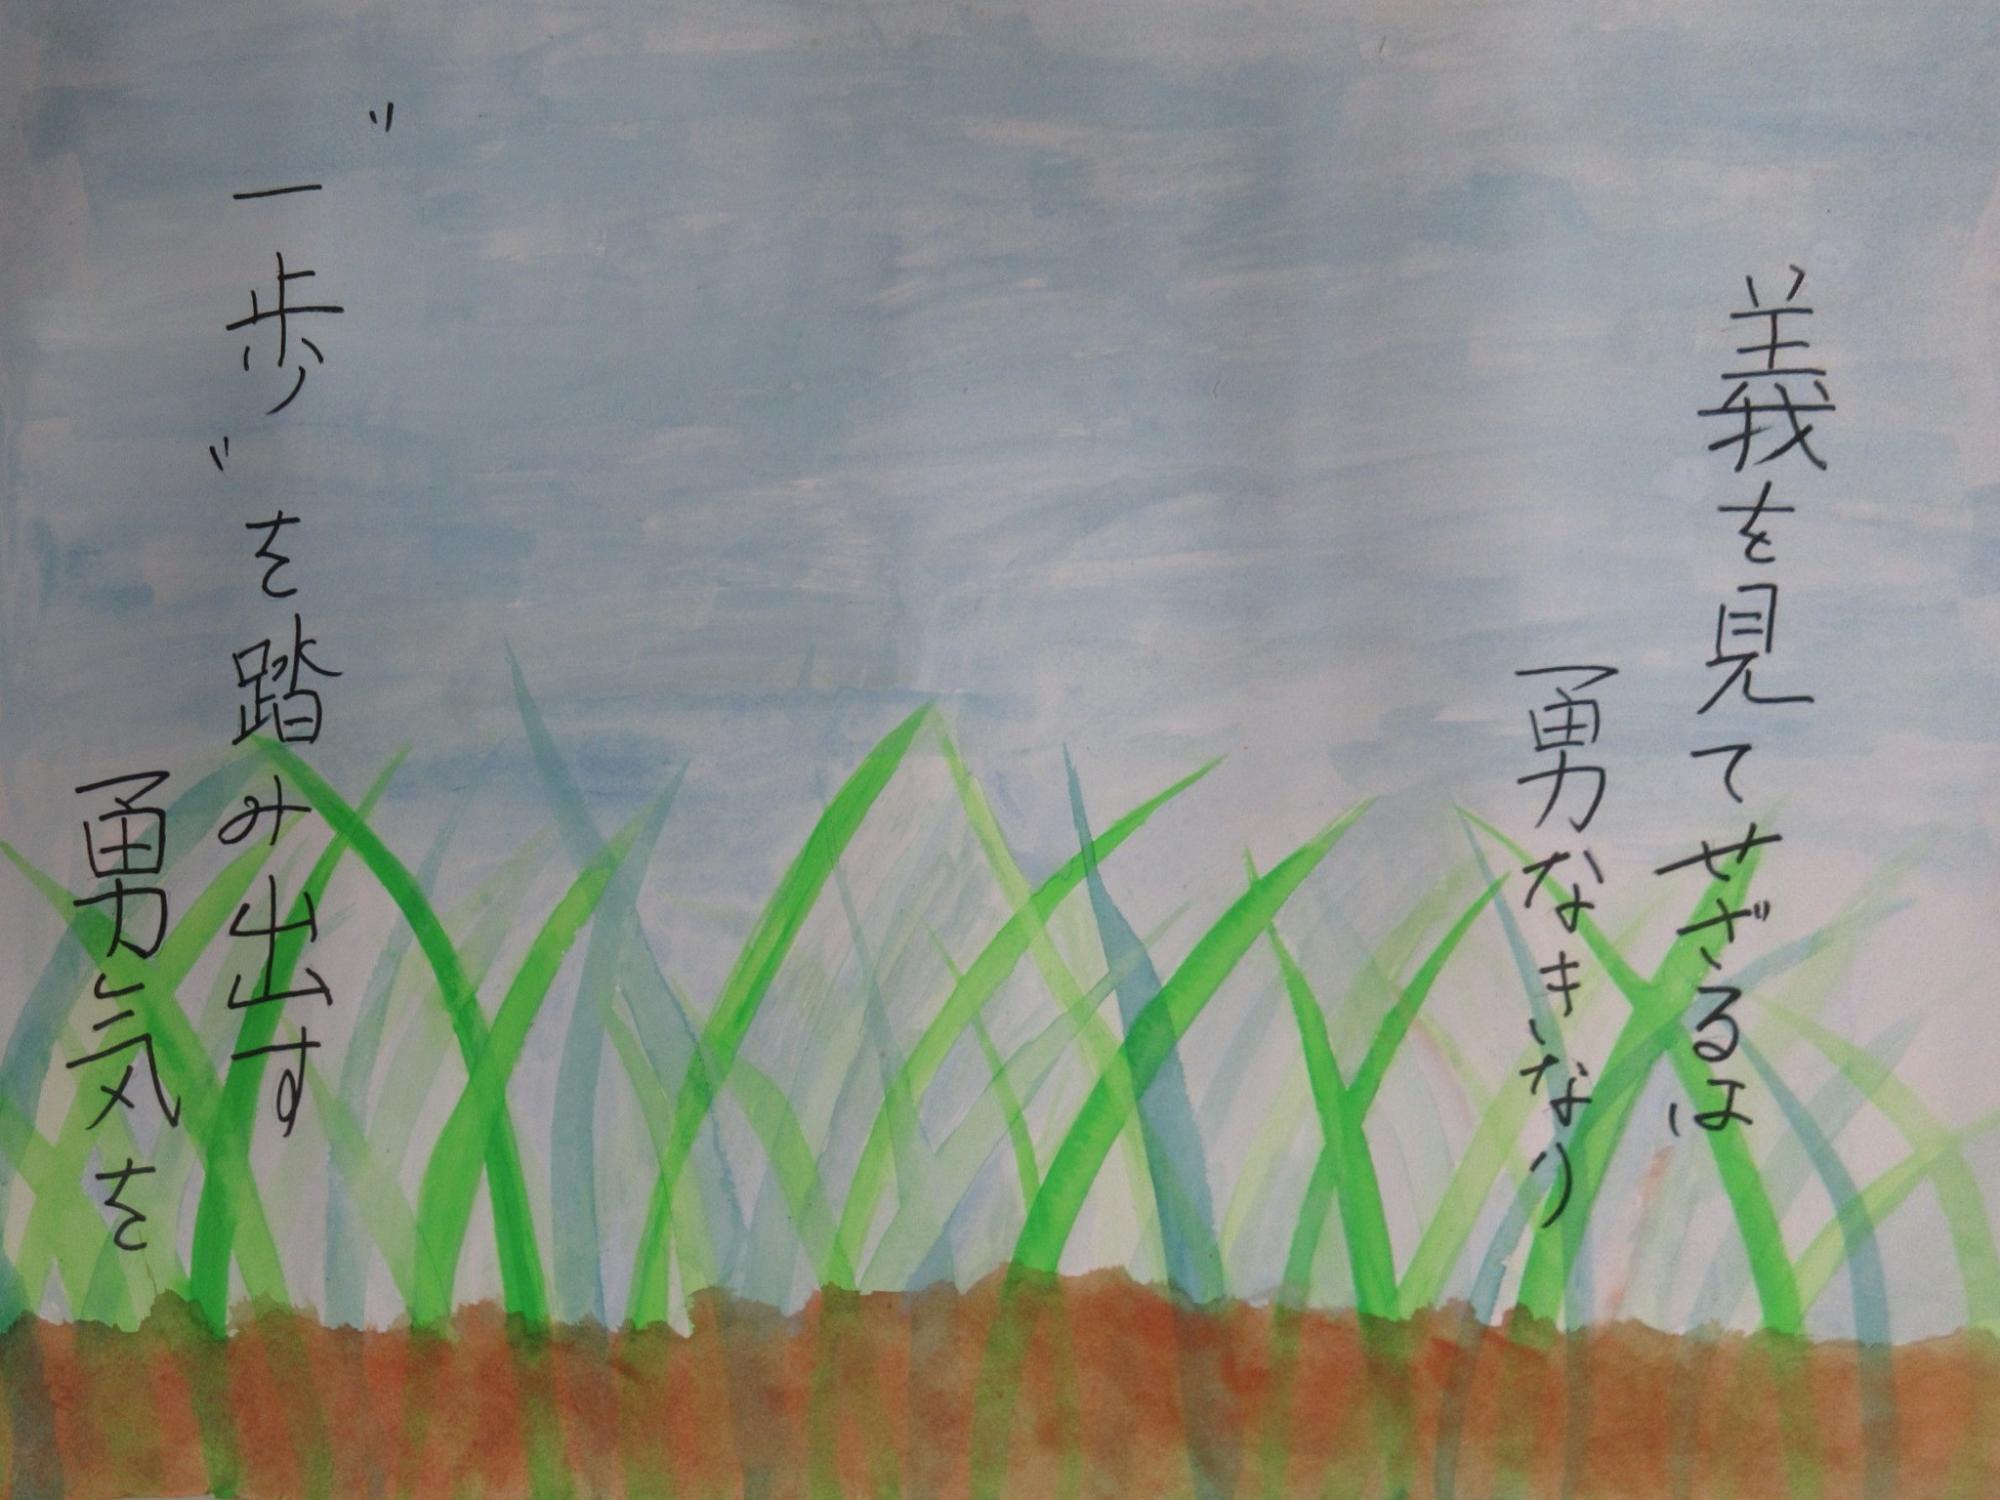 義を見てせざるは
勇なきなり
"一歩"を踏み出す
勇気を